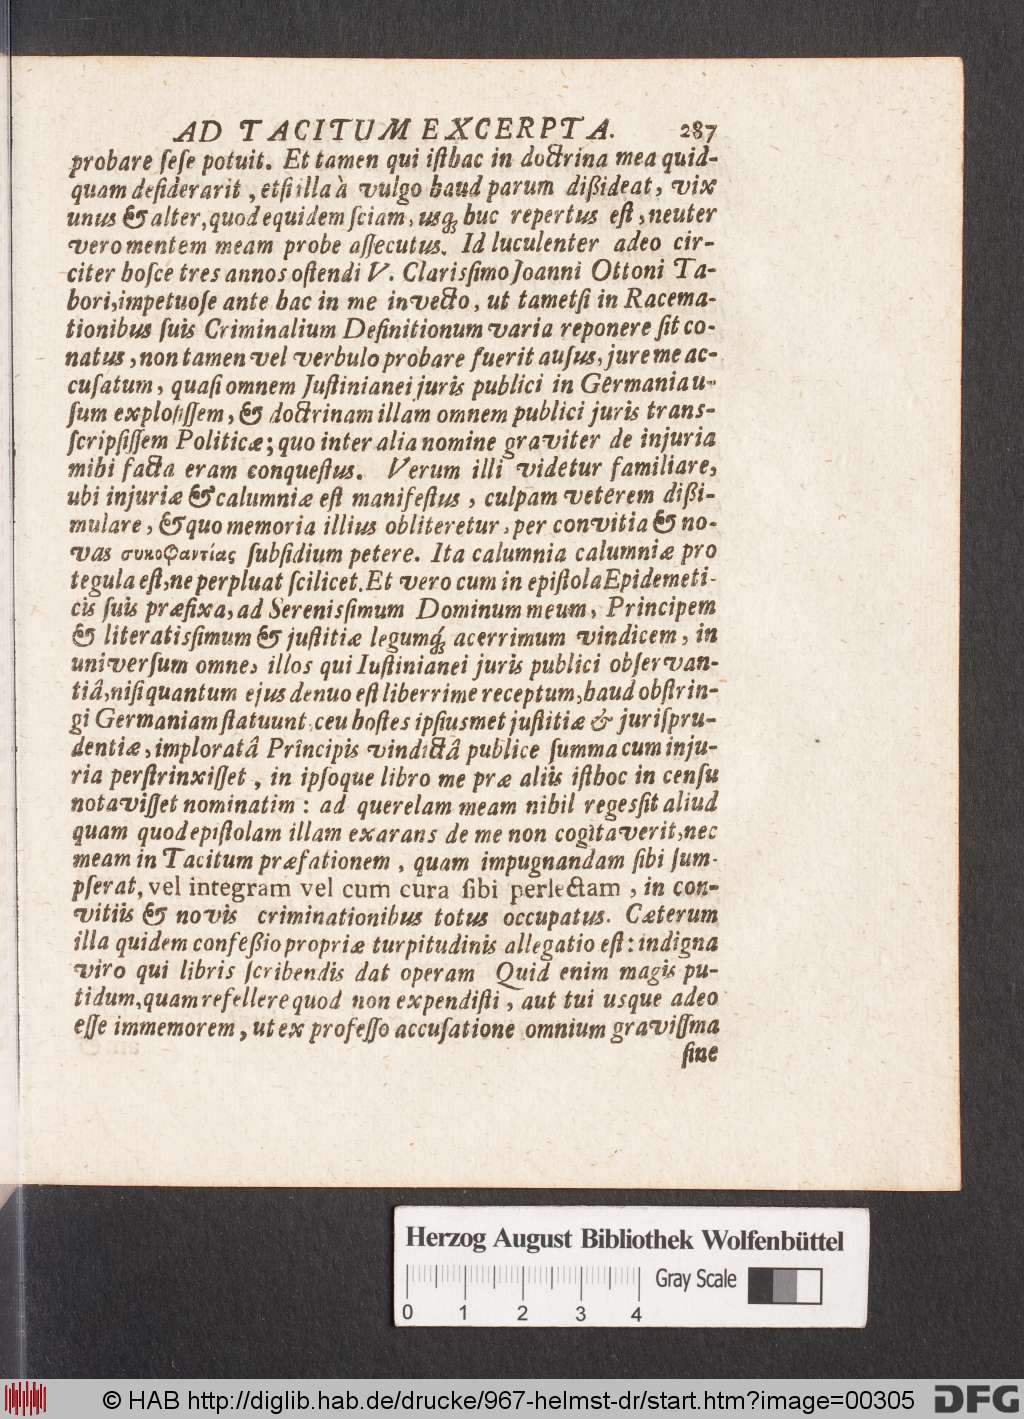 AD TACITUM EXCERPTA. 287
probare sese potuit. Et tamen qui isthac in doctrina mea quid-
quam desiderarit, etsi illa à vulgo haud parum dißideat, vix
unus & alter, quod equidem sciam, usq; huc repertus est, neuter
vero mentem meam probe assecutus. Id luculenter adeo cir-
citer hosce tres annos ostendi V. Clarissimo Joanni Ottoni Ta-
bori, impetuose ante hac in me invecto, ut tametsi in Racema-
tionibus suis Criminalium Definitionum varia reponere sit co-
natus, non tamen vel verbulo probare fuerit ausus, jure me ac-
cusatum, quasi omnem Justinianei juris publici in Germania u-
sum explosissem, & doctrinam illam omnem publici juris trans-
scripsissem Politicæ; quo inter alia nomine graviter de injuria
mihi facta eram conquestus. Verum illi videtur familiare,
ubi injuriæ & calumniæ est manifestus, culpam veterem dißi-
mulare, & quo memoria illius obliteretur, per convitia & no-
vas συκοφαντίας subsidium petere. Ita calumnia calumniæ pro
tegula est, ne perpluat scilicet. Et vero cum in epistola Epidemeti-
cis suis præfixa, ad Serenissimum Dominum meum, Principem
& literatissimum & justitiæ legumq; acerrimum vindicem, in
universum omne, illos qui Iustinianei juris publici observan-
tiâ, nisi quantum ejus denuo est liberrime receptum, haud obstrin-
gi Germaniam statuunt, ceu hostes ipsiusmet justitiæ & jurispru-
dentiæ, imploratâ Principis vindictâ publice summa cum inju-
ria perstrinxisset, in ipsoque libro me præ aliis isthoc in censu
notavisset nominatim: ad querelam meam nihil regessit aliud
quam quod epistolam illam exarans de me non cogitaverit, nec
meam in Tacitum præfationem, quam impugnandam sibi sum-
pserat, vel integram vel cum cura sibi perlectam, in con-
vitiis & novis criminationibus totus occupatus. Cæterum
illa quidem confeßio propriæ turpitudinis allegatio est: indigna
viro qui libris scribendis dat operam Quid enim magis pu-
tidum, quam refellere quod non expendisti, aut tui usque adeo
esse immemorem, ut ex professo accusatione omnium gravissma
sine
Herzog August Bibliothek Wolfenbüttel
Gray Scale
0 1 2 3 4
© HAB http://diglib.hab.de/drucke/967-helmst-dr/start.htm?image=00305
DFG